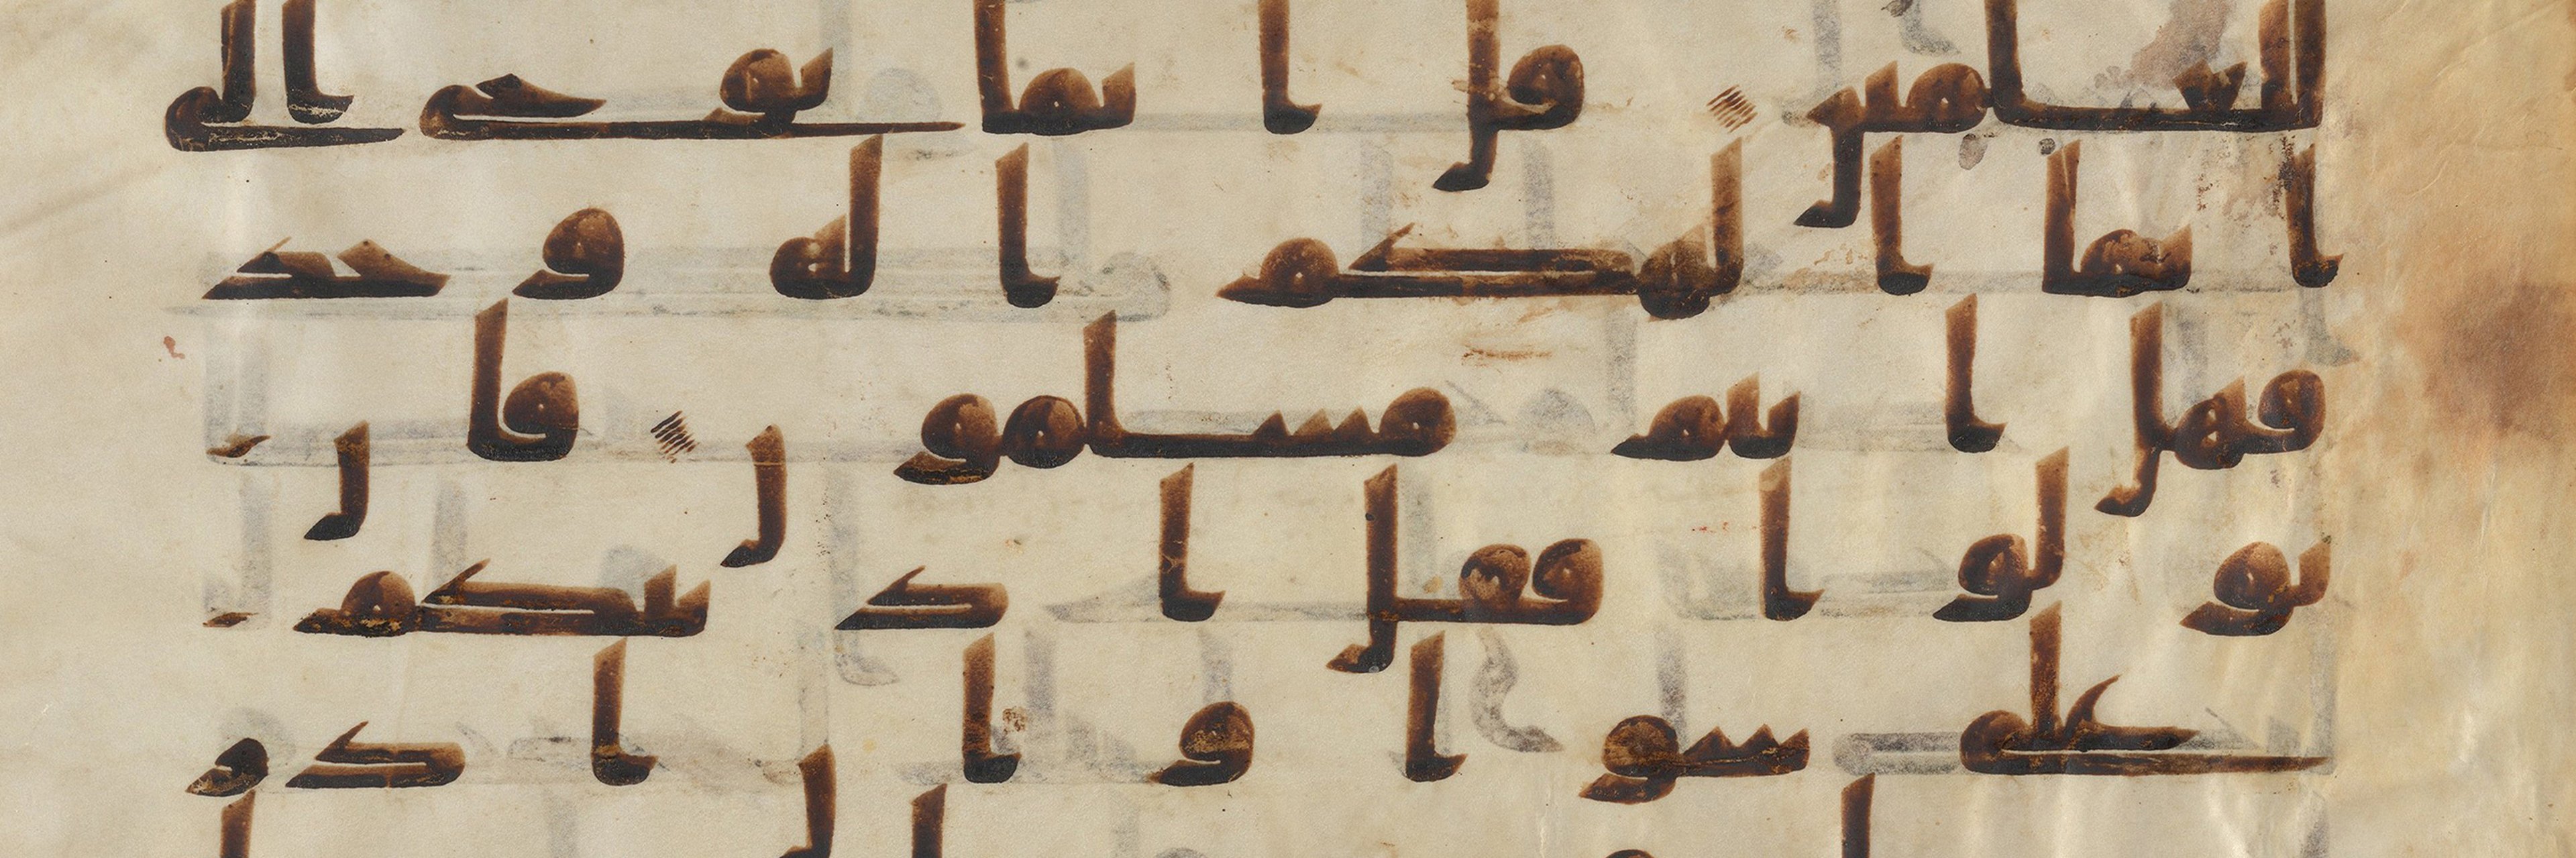 للعلمين قل انما يوحى الى
انما الهكم اله وحد
فهل انتم مسلمون فان
تولوا فقل اذنتكم
على سوا وان ادر